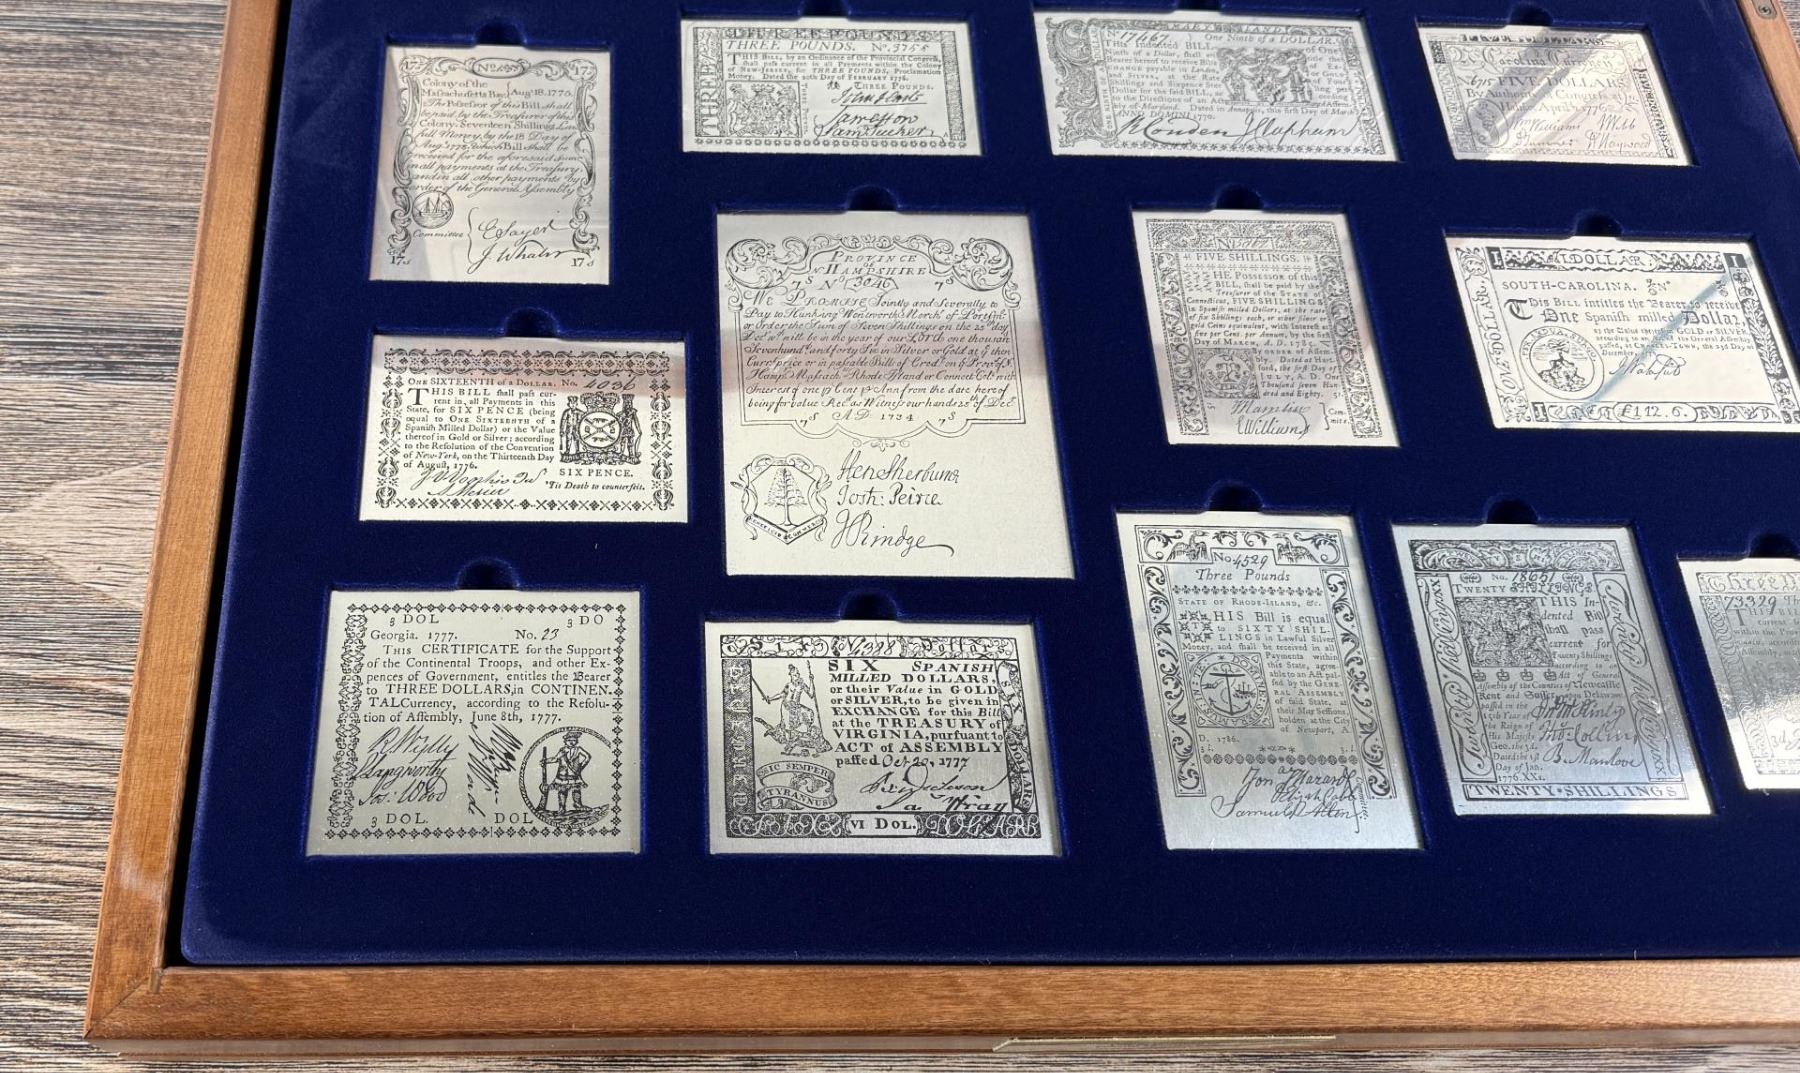 17s No. 17s
Colony of the
Massachusetts Bay } Aug. 18. 1775.
The Possessor of this Bill shall
be paid by the Treasurer of this
Colony, Seventeen Shillings
full Money, by the 18 Day of
Aug. 1778, which Bill shall be
received for the aforesaid Sum
in all payments at the Treasury
and in all other payments by
order of the General Assembly
Committee
C Sayer
J. Whaler
17s 17s
THREE POUNDS
THREE POUNDS. No. 5755
THIS BILL, by an Ordinance of the Provincial Congress,
shall pass current in all Payments within the Colony
of New-Jersey, for THREE POUNDS, Proclamation
Money. Dated the 20th Day of FEBRUARY 1776.
THREE POUNDS.
Sam Tucker
THREE
MARYLAND
No. 17467. One Ninth of a DOLLAR.
THIS Indented BILL of One
Ninth of a Dollar, shall
Bearer hereof to receive Bills of Ex-
CHANGE payable in London, or Gold
and SILVER, at the Rate of
Shillings and Sixpence Ster per
Dollar for the said BILL, according
to the Directions of an Act of Assem-
bly of Maryland. Dated in Annapolis, this first Day of March
ANNO DOMINI 1770.
R Couden J Clapham
FIVE DOLLARS
No Carolina Currency
No 675 FIVE DOLLARS
By Authority of Congress at
Halifax April 2d 1776
Wm Williams J Webb
W Haywood
ONE SIXTEENTH of a DOLLAR. No. 4036
THIS BILL shall pass cur-
rent in all Payments in this
State, for SIX PENCE (being
equal to ONE SIXTEENTH of a
Spanish Milled Dollar) or the Value
thereof in Gold or Silver; according
to the Resolution of the Convention
of New-York, on the Thirteenth Day
of August, 1776.
SIX PENCE.
'Tis Death to counterfeit.
PROVINCE
of
N HAMPSHIRE
7s No 3046 7s
We PROMISE Jointly and Severally to
Pay to Hunking Wentworth Merch.t of Portsm.o
or Order the Sum of Seven Shillings on the 25th day
Dec.r w.ch will be in the year of our LOrd: one thousand
Sevenhund.d and forty Two in Silver or Gold at ye then
Curr.t price or in passable Bills of Cred.t on ye Prov.s of N
Hamp.r Massach.ts Rhode Island or Connect.t Col: with
Interest of one p Cent p Ann from the date hereof
being for value Rec.d as Witness our hands 25th of Dec.r
7s A.D: 1734 7s
Hen Sherburne
Josh: Peirce
J Rindge
FIVE SHILLINGS.
THE POSSESSOR of this
BILL, shall be paid by the
Treasurer of the STATE of
Connecticut, FIVE SHILLINGS
in Spanish milled Dollars, at the rate
of six Shillings each, or other silver or
gold Coins equivalent, with Interest at
five per Cent. per Annum, by the first
Day of MARCH, A. D. 1785.
By ORDER of Assem-
bly. Dated at Hart-
ford, the first Day of
JULY, A. D. One
Thousand seven Hun-
dred and Eighty.
Com-
mitee.
I 1 DOLLAR I
ONE DOLLAR
SOUTH-CAROLINA. No
This BILL intitles the Bearer to receive
One Spanish milled Dollar,
or the Value thereof in GOLD or SILVER,
according to an Act of the General Assembly,
passed, at CHARLES-TOWN, the 23d Day of
December,
£1 12. 6.
3 DOL 3 DO
Georgia. 1777. No. 23
THIS CERTIFICATE for the Support
of the Continental Troops, and other Ex-
pences of Government, entitles the Bearer
to THREE DOLLARS, in CONTINEN.
TAL Currency, according to the Resolu-
tion of Assembly, June 8th, 1777.
R. Wylly
Langworthy
Jas: Wood
3 DOL. DOL
Six Dollars
SIX SPANISH
MILLED DOLLARS,
or their Value in GOLD
or SILVER, to be given in
EXCHANGE for this Bill
at the TREASURY of
VIRGINIA, pursuant to
ACT of ASSEMBLY
passed Oct 20, 1777
SIC SEMPER
TYRANNUS
a. Wray
SIX DOLLARS
VI DOL. DOLLARS
No. 4529
Three Pounds
STATE OF RHODE-ISLAND, &c.
THIS Bill is equal
to SIXTY SHIL-
LINGS in Lawful Silver
Money, and shall be received in all
Payments within
this State, agree-
able to an Act pas-
sed by the GENE-
RAL ASSEMBLY
of said State, at
their May Sessions,
holden at the City
of Newport, A.
D. 1786.
3 l. 3 l.
Jon J Hazard
Elijah Cobb
Samuel Allen
Committee
No. 18651
TWENTY SHILLINGS
THIS In-
dented Bill
shall pass
current for
Twenty Shillings
according to an
Act of General
Assembly of the Counties of Newcastle
Kent and Sussex upon Delaware
passed in the
15th Year of
the Reign of
His Majesty
Geo. the 3d.
Dated the 1st
Day of Jan.
1776. XXs.
Tho: Collins
B. Manlove
TWENTY·SHILLINGS
Three
73329